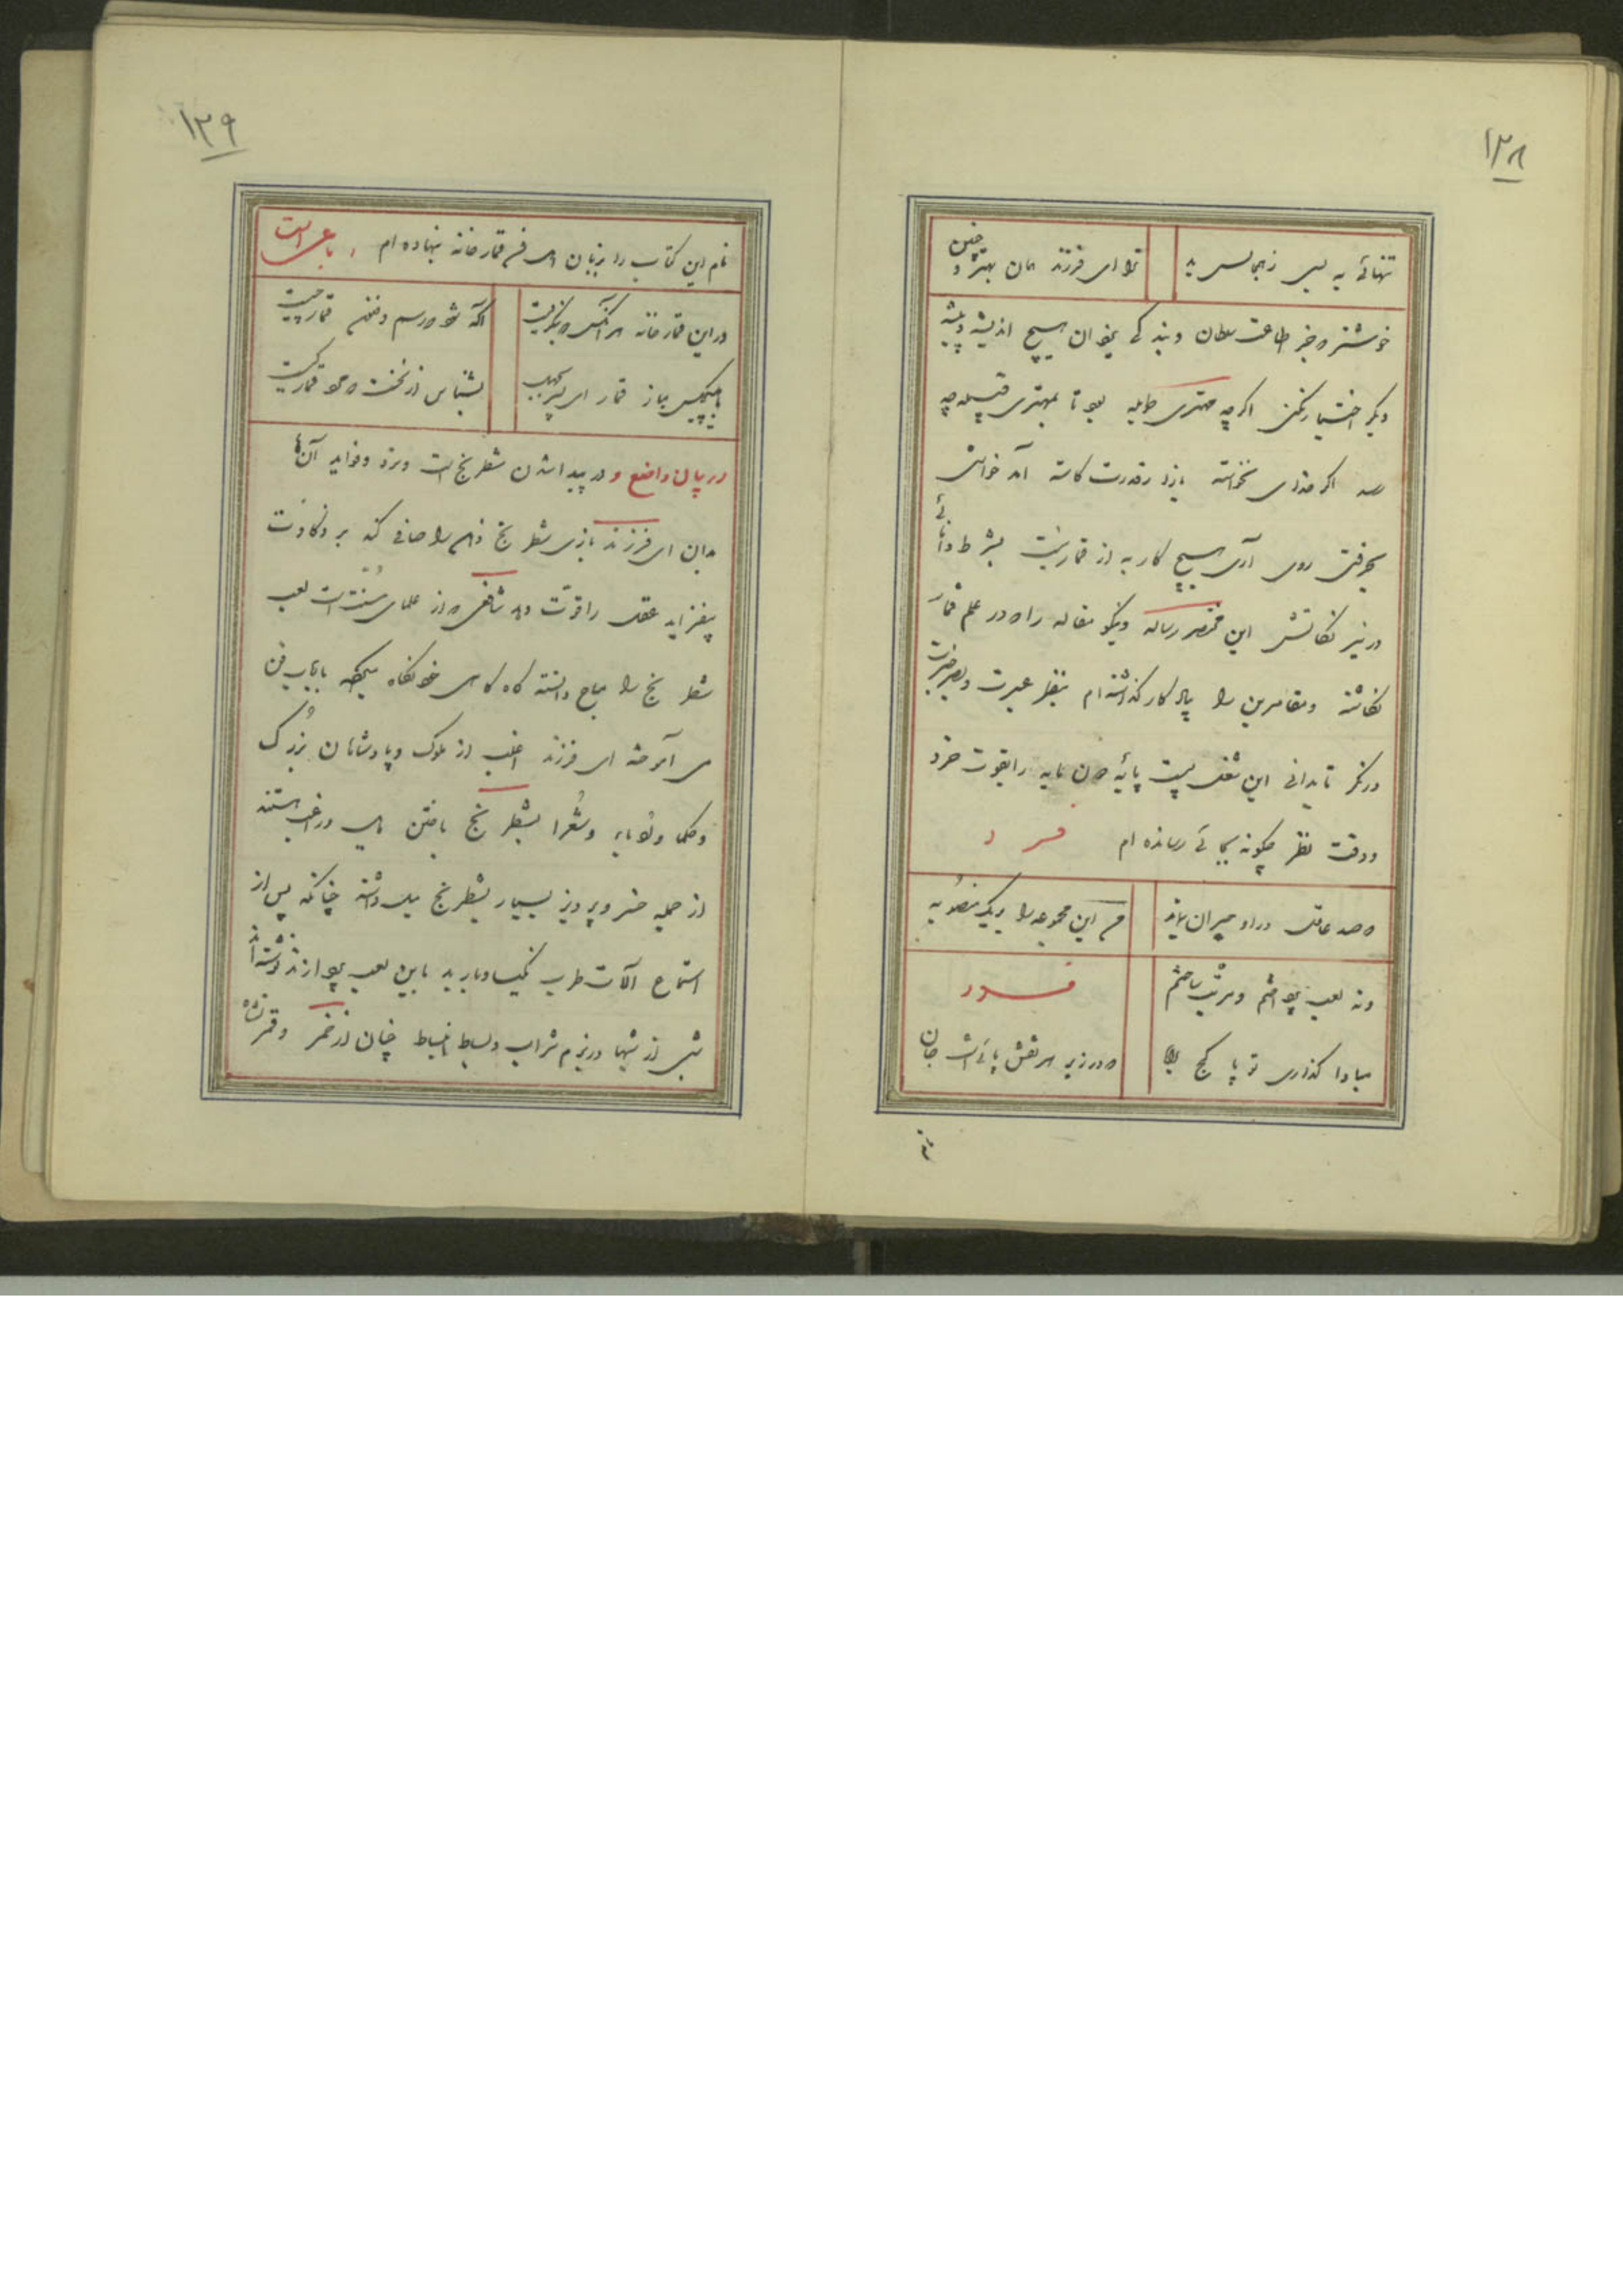 ۱۳۸
تنهائی به بسی ز همجالس بد
ترا ای فرزند همان بهتر و چنین
خوشتر که جز طاعت سلطان و بندگی یزدان هیچ اندیشه و پیشه
دیگر اختیار نکنی اگرچه مهتری طویله بود تا بمهتری قبیله چه
رسد اگر خدای نخواسته باز قدرت کاسته آمد خواستی
بحرفتی روی آری هیچ کار به از قمار نیست بشرط دانائی
در نیز نکاتش این مختصر رساله و نیکو مقاله را که در علم قمار
نگاشته و مقامرین را پای کار گذاشته ام بنظر عبرت و بصر خبرت
در نگر تا بدانی این شغل پست پایه دون مایه را بقوت خرد
و دقت نظر چگونه بجائی رسانده ام فرد
که صد عاقل در او حیران بماند
من این مجموعه را بر یک منصوبه
فرد
مبادا گذاری تو پا کج
که در زیر هر نقش پائی است جان
نام
۱۳۹
نام این کتاب را بزبان اهل فن قمارخانه نهاده ام رباعی است
در این قمارخانه هر آنکس که بنگریست
آگه شود که رسم و فن قمار چیست
با هیچکس مباز قمار ای پسر
بشناس از نخست که مرد قمار کیست
در بیان واضع و در پیدا شدن شطرنج است و نرد و فواید آنها
بدان ای فرزند بازی شطرنج ذهن را صافی کند بر ذکاوت
بیفزاید عقل را قوت دهد شافعی که از علمای سنت است لعب
شطرنج را مباح دانسته گاه گاهی خود نگاه میکرد با ارباب فن
می آموخت ای فرزند اغلب از ملوک و پادشاهان بزرگ
و حکما و ادبا و شعرا بشطرنج باختن مایل و راغب هستند
از جمله خسرو پرویز بسیار بشطرنج میل داشته چنانکه پس از
استماع آلات طرب نکیسا و باربد باین لعب پردازند نوشته اند
شبی از شبها در بزم شراب و بساط انبساط چنان از خمر و قمر